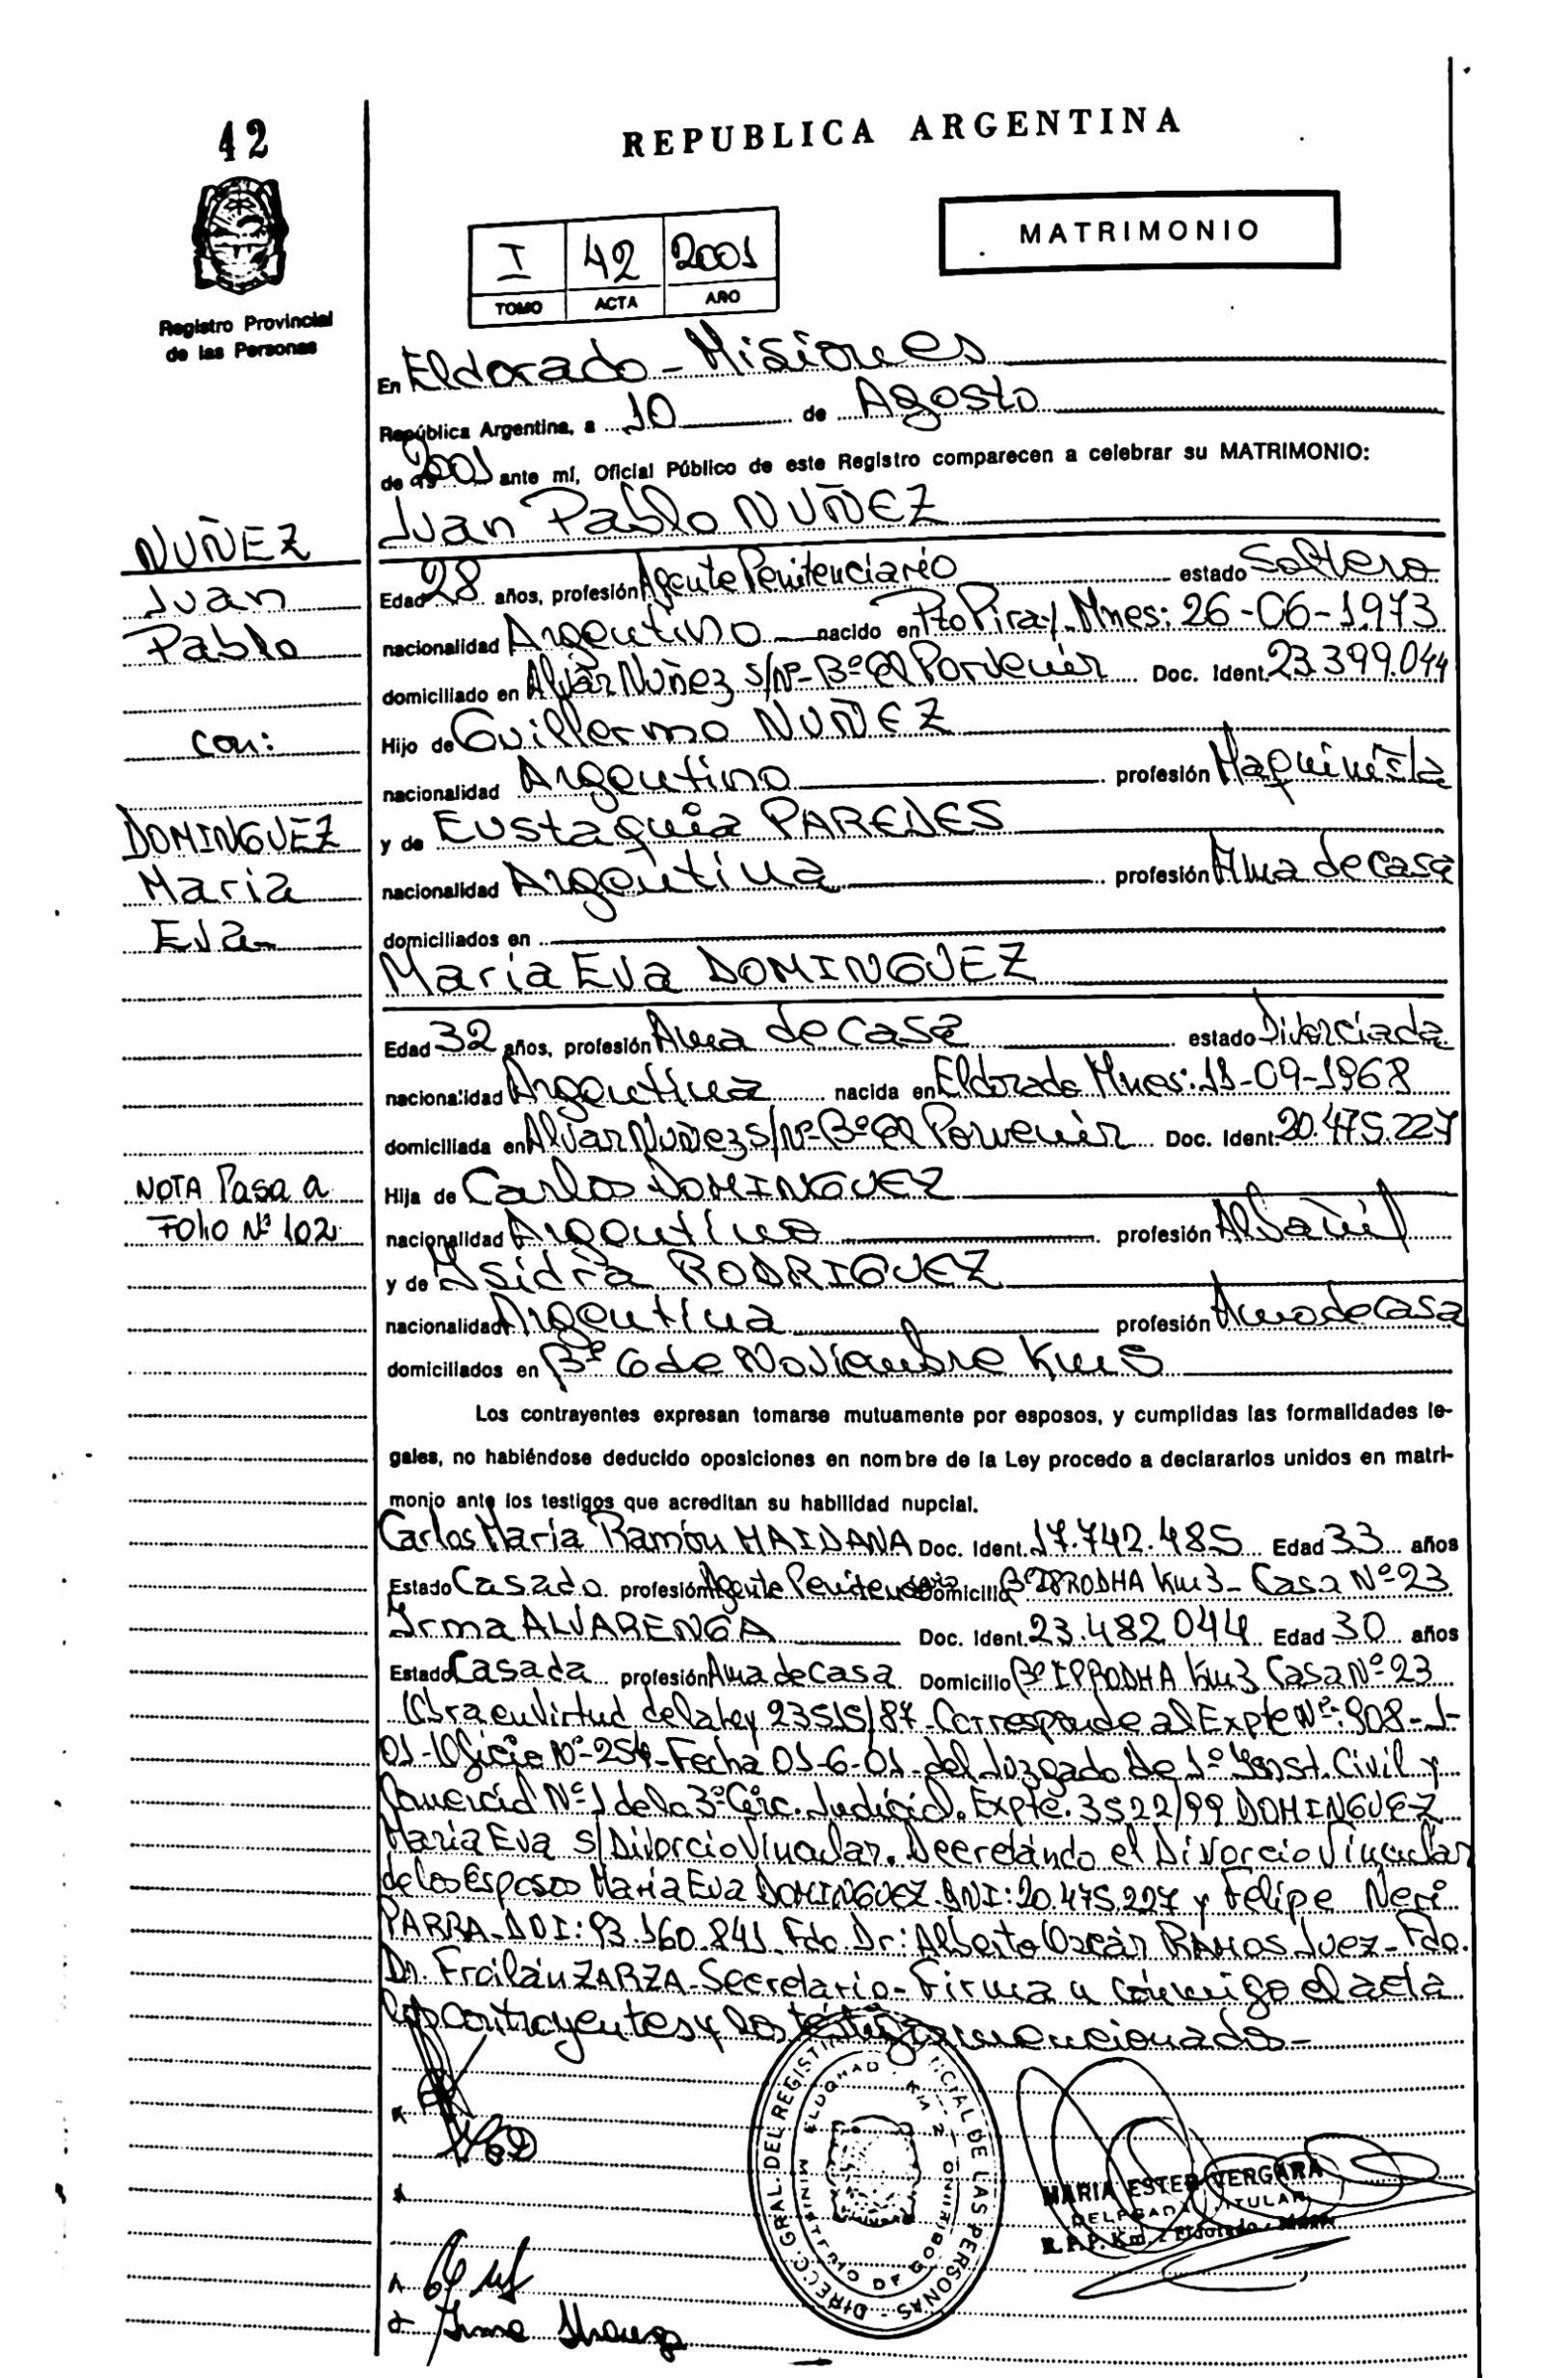 42
REPUBLICA ARGENTINA
MATRIMONIO
I 42 2001
TOMO ACTA AÑO
Registro Provincial
de las Personas
En Eldorado - Misiones
República Argentina, a 10 de Agosto
de 2001 ante mí, Oficial Público de este Registro comparecen a celebrar su MATRIMONIO:
Juan Pablo NUÑEZ
NUÑEZ
Juan
Pablo
con:
DOMINGUEZ
Maria
Eva
NOTA Pasa a
Folio Nº 102
Edad 28 años, profesión Agente Penitenciario estado Soltero
nacionalidad Argentino nacido en Pto Piray. Mnes: 26-06-1973
domiciliado en Alvar Nuñez s/Nº- Bº El Porvenir Doc. Ident. 23.399.044
Hijo de Guillermo NUÑEZ
nacionalidad Argentino profesión Maquinista
y de Eustaquia PAREDES
nacionalidad Argentina profesión Ama de casa
domiciliados en
Maria Eva DOMINGUEZ
Edad 32 años, profesión Ama de casa estado Divorciada
nacionalidad Argentina nacida en Eldorado Mnes: 11-09-1968
domiciliada en Alvar Nuñez s/Nº- Bº El Porvenir Doc. Ident. 20.475.227
Hija de Carlos DOMINGUEZ
nacionalidad Argentino profesión Albañil
y de Isidra RODRIGUEZ
nacionalidad Argentina profesión Ama de casa
domiciliados en Bº 6 de Noviembre Km 5
Los contrayentes expresan tomarse mutuamente por esposos, y cumplidas las formalidades le-
gales, no habiéndose deducido oposiciones en nombre de la Ley procedo a declararlos unidos en matri-
monio ante los testigos que acreditan su habilidad nupcial.
Carlos María Ramón MAIDANA Doc. Ident. 17.742.485 Edad 33 años
Estado Casado profesión Agente Penitenciario Domicilio Bº IPRODHA Km 3 - Casa Nº 23
Irma ALVARENGA Doc. Ident. 23.482.044 Edad 30 años
Estado Casada profesión Ama de casa Domicilio Bº IPRODHA Km 3 Casa Nº 23
Obra en virtud de la Ley 23515/87 - Corresponde al Expte Nº: 908-J-
01-Oficio Nº 254- Fecha 01-6-01- del Juzgado de 1º Inst. Civil y
Comercial Nº 1 de la 3º Circ. Judicial. Expte. 3522/99 DOMINGUEZ
Maria Eva s/ Divorcio Vincular. Decretando el Divorcio Vincular
de los Esposos Maria Eva DOMINGUEZ. DNI: 20.475.227 y Felipe Neri
PARRA - DNI: 93.160.841. Fdo Dr: Alberto Oscar RAMOS Juez - Fdo.
Dr. Froilán ZARZA - Secretario - Firman conmigo el acta
los contrayentes y los testigos mencionados -
DIRECC. GRAL. DEL REGISTRO PROVINCIAL DE LAS PERSONAS
MINISTERIO DE GOBIERNO
ELDORADO KM 2
MARIA ESTER VERGARA
DELEGADA TITULAR
R.P.P. Km. Eldorado - Mnes